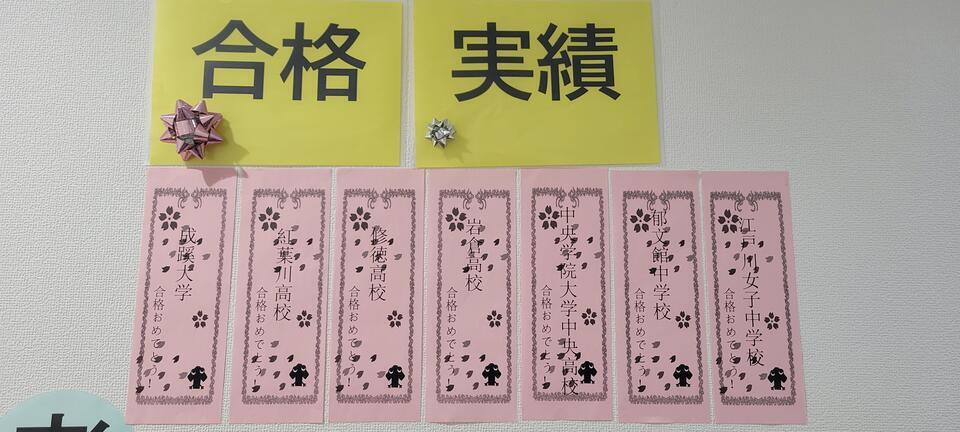 合格
実績
成蹊大学
合格おめでとう!
紅葉川高校
合格おめでとう!
修徳高校
合格おめでとう!
岩倉高校
合格おめでとう!
中央学院大学中央高校
合格おめでとう!
郁文館中学校
合格おめでとう!
江戸川女子中学校
合格おめでとう!